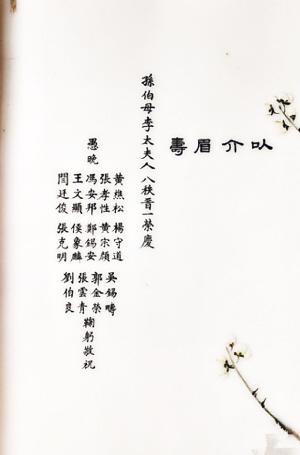 以介眉壽
孫伯母李太夫人八秩晉一榮慶
愚晚
黃樵松 楊守道 吳錫疇
張孝性 黃宗顏 郭金榮
馮安邦 鄭錫安 張雲青
王文顯 侯象麟 劉伯良
閆廷俊 張克明
鞠躬敬祝